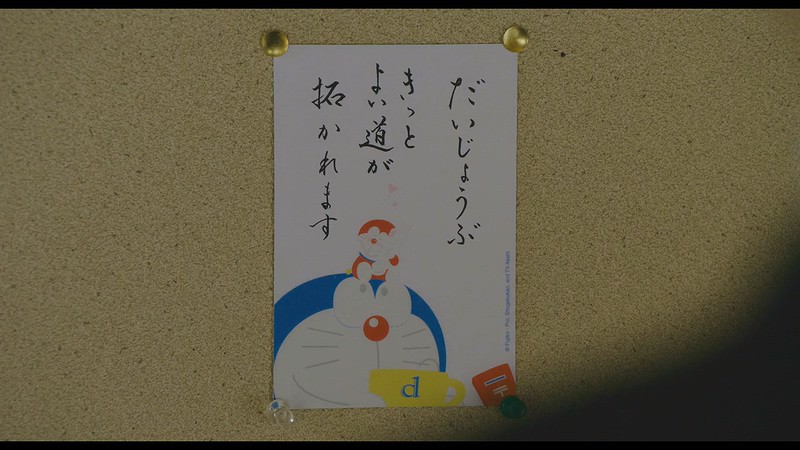 だいじょうぶ
きっと
よい道が
拓かれます
d
© Fujiko-Pro, Shogakukan, and TV-Asahi